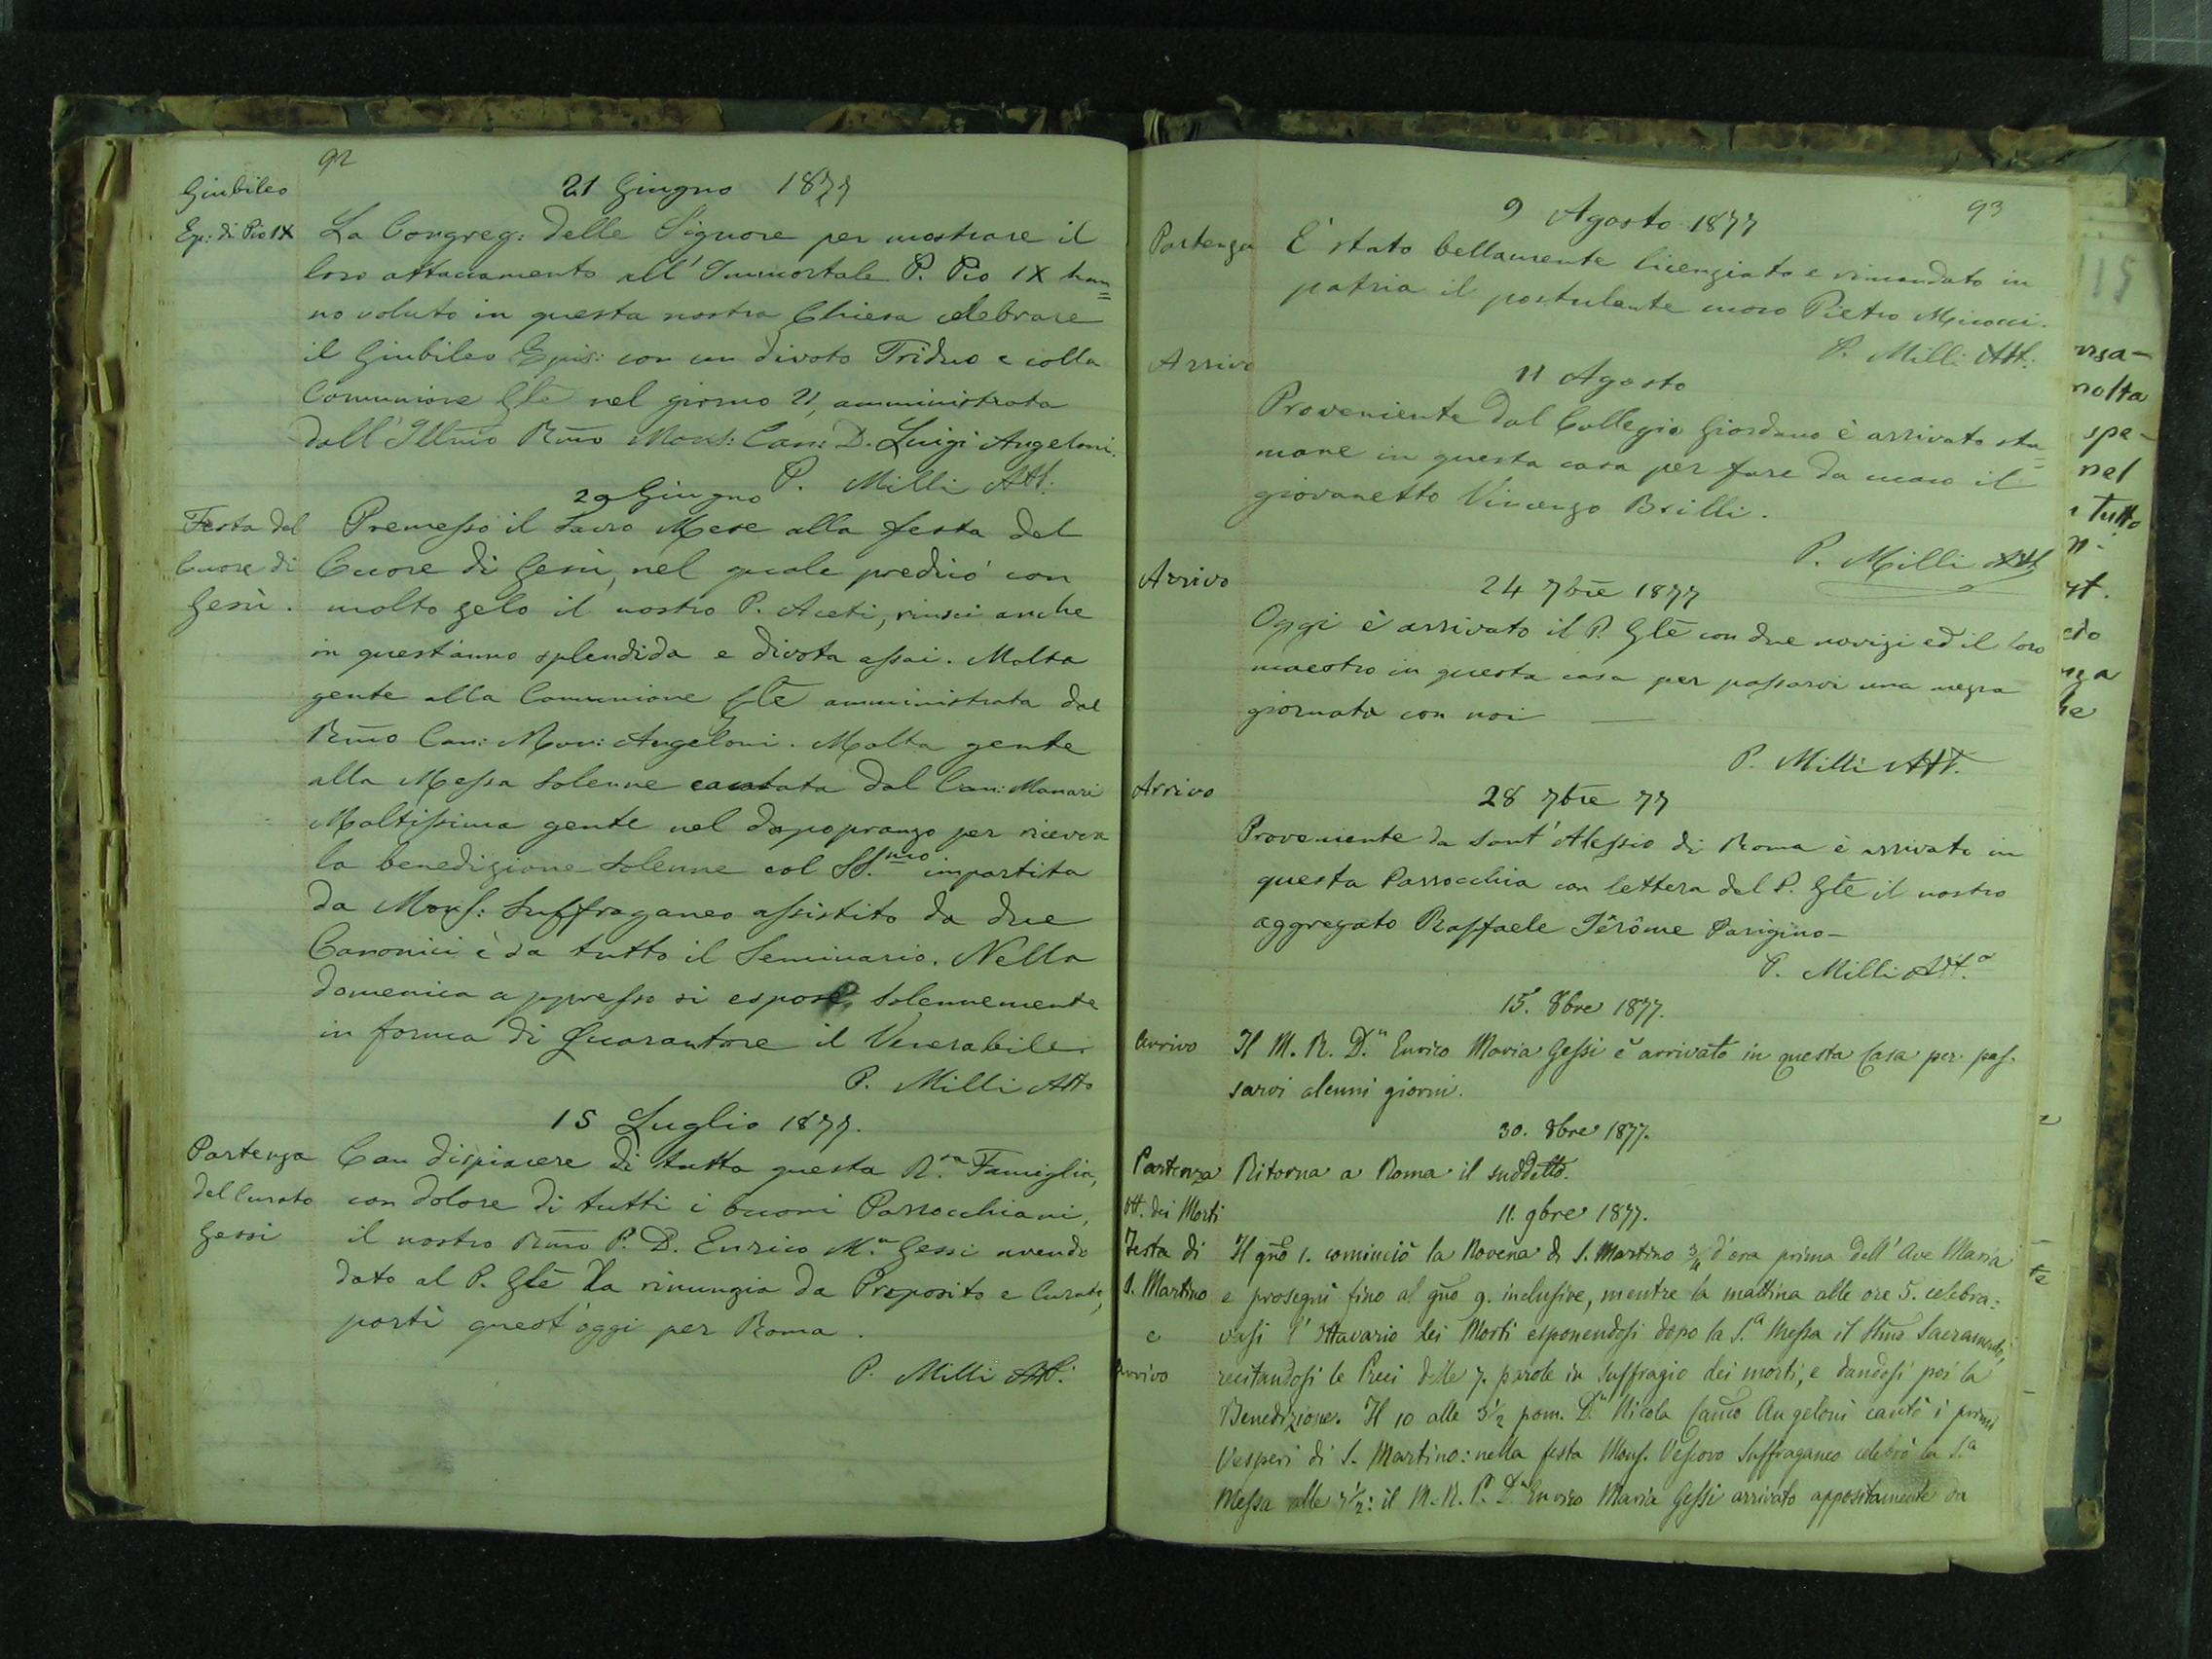 92
21 Giugno 1877
Giubileo
Ep: di Pio IX
La Congreg: delle Signore per mostrare il
loro attaccamento all'Immortale P. Pio IX han=
no voluto in questa nostra Chiesa celebrare
il Giubileo Epis: con un divoto Triduo e colla
Comunione Gle nel giorno 21, amministrata
dall'Illmo Rmo Mons: Can: D. Luigi Angeloni.
P. Milli Att.
29 Giugno
Festa del
Cuore di
Gesù.
Premesso il Sacro Mese alla festa del
Cuore di Gesù, nel quale predicò con
molto zelo il nostro P. Aceti, riuscì anche
in quest'anno splendida e divota assai. Molta
gente alla Comunione Gle amministrata dal
Rmo Can: Mon: Angeloni. Molta gente
alla Messa Solenne cantata dal Can: Manari
Moltissima gente nel dopopranzo per ricever
la benedizione Solenne col SS.mo impartita
da Mons: Suffraganeo assistito da due
Canonici e da tutto il Seminario. Nella
domenica appresso si espose Solennemente
in forma di Quarantore il Venerabile.
P. Milli Atto
15 Luglio 1877.
Partenza
del Curato
Gessi
Con dispiacere di tutta questa R.sa Famiglia,
con dolore di tutti i buoni Parrocchiani,
il nostro Rmo P. D. Enrico M.a Gessi avendo
dato al P. Gle la rinunzia da Preposito e Curato,
partì quest'oggi per Roma.
P. Milli Att.
93
9 Agosto 1877
Partenza
E' stato bellamente licenziato e rimandato in
patria il postulante moro Pietro
P. Milli Att.
Arrivo
11 Agosto
Proveniente dal Collegio Giordano è arrivato sta=
mane in questa casa per fare da moro il
giovanetto Vincenzo Brilli.
P. Milli Att
Arrivo
24 7bre 1877
Oggi è arrivato il P. Gle con due novizi ed il loro
maestro in questa casa per passarvi una negra
giornata con noi —
P. Milli Att.
Arrivo
28 7bre 77
Proveniente da Sant'Alessio di Roma è arrivato in
questa Parrocchia con lettera del P. Gle il nostro
aggregato Raffaele Jérôme Parigino—
P. Milli Att.o
15. 8bre 1877.
Arrivo
Il M. R. D.n Enrico Maria Gessi è arrivato in questa Casa per pas-
sarvi alcuni giorni.
30. 8bre 1877.
Partenza
Ritorna a Roma il suddetto.
11. 9bre 1877.
Ott. dei Morti
Festa di
S. Martino
e
Arrivo
Il gno 1. cominciò la Novena di S. Martino 3/4 d'ora prima dell'Ave Maria
e proseguì fino al gno 9. inclusive, mentre la mattina alle ore 5. celebra=
vasi l'Ottavario dei Morti esponendosi dopo la S.a Messa il Smo Sacramento,
recitandosi le Preci delle 7. parole in suffragio dei morti, e dandosi poi la
Benedizione. Il 10 alle 3 1/2 pom. D.n Nicola Canco Angeloni cantò i primi
Vesperi di S. Martino: nella festa Mons. Vescovo Suffraganeo celebrò la S.a
Messa alle 7 1/2: il M. R. P. D.n Enrico Maria Gessi arrivato appositamente da